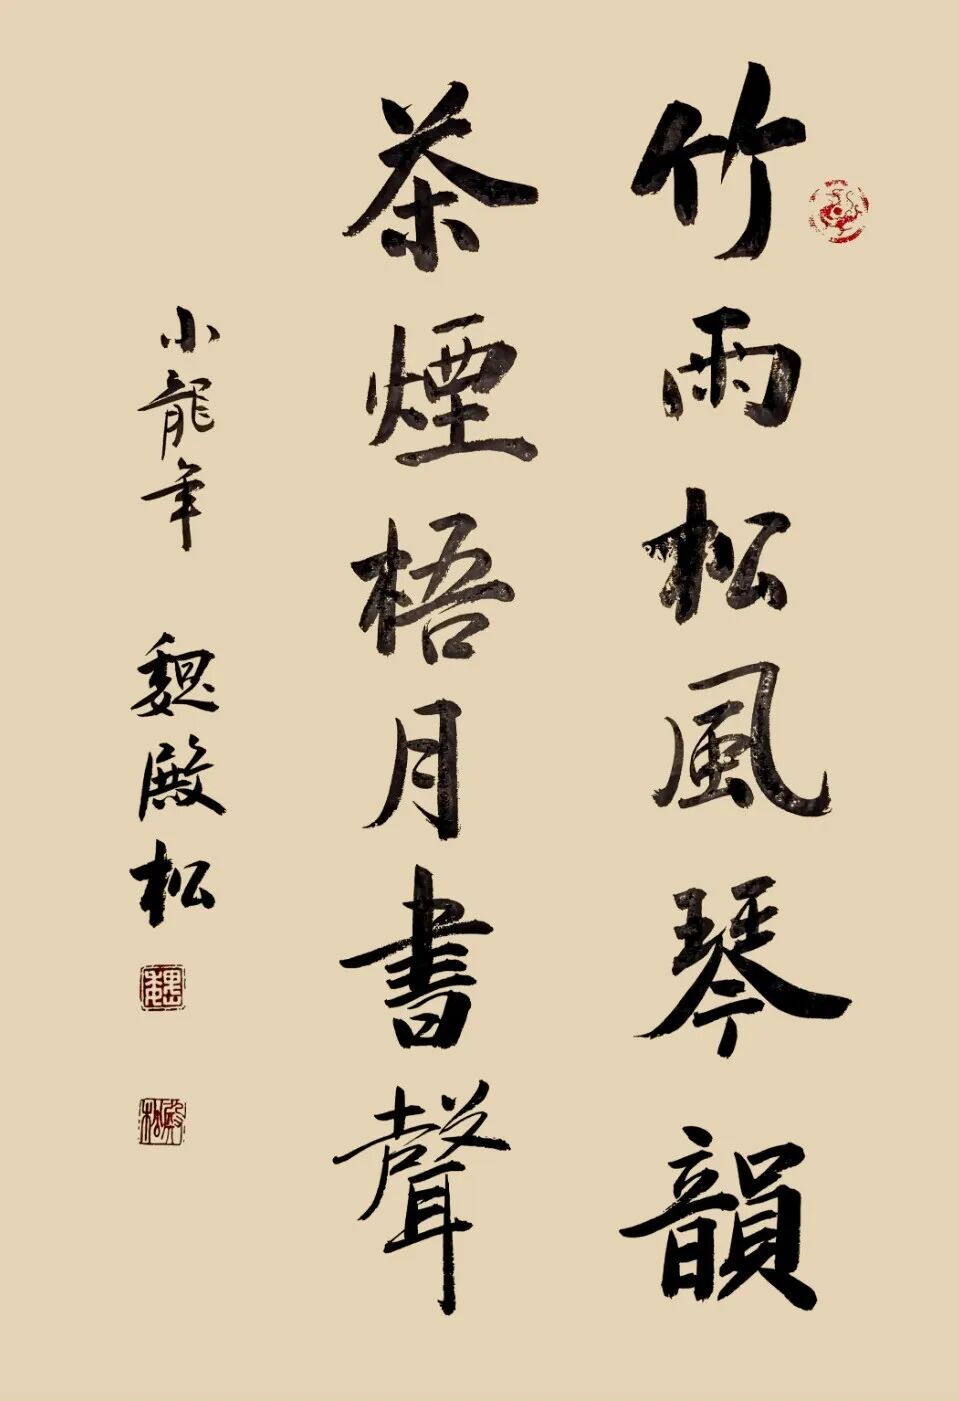 竹雨松風琴韻
茶煙梧月書聲
小龍年 魏殿松
魏
殿松